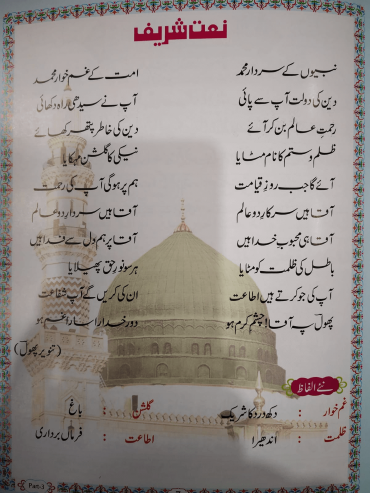 نعت شریف
نبیوں کے سردار محمد امت کے غم خوار محمد
دین کی دولت آپ سے پائی آپ نے سیدھی راہ دکھائی
رحمتِ عالم بن کر آئے دین کی خاطر پتھر کھائے
ظلم و ستم کا نام مٹایا نیکی کا گلشن مہکایا
آئے گا جب روزِ قیامت ہم پر ہوگی آپ کی رحمت
آقا ہیں سرکارِ دو عالم آقا ہیں سردارِ دو عالم
آقا ہی محبوبِ خدا ہیں آقا پر ہم دل سے فدا ہیں
باطل کی ظلمت کو مٹایا ہر سو نورِ حق پھیلایا
آپ کی جو کرتے ہیں اطاعت ان کی کریں گے آپ شفاعت
پھولؔ پہ آقا! چشمِ کرم ہو دور خدارا سارا غم ہو
(تنویر پھولؔ)
نئے الفاظ
غم خوار : دکھ درد کا شریک گلشن : باغ
ظلمت : اندھیرا اطاعت : فرماں برداری
Part-3